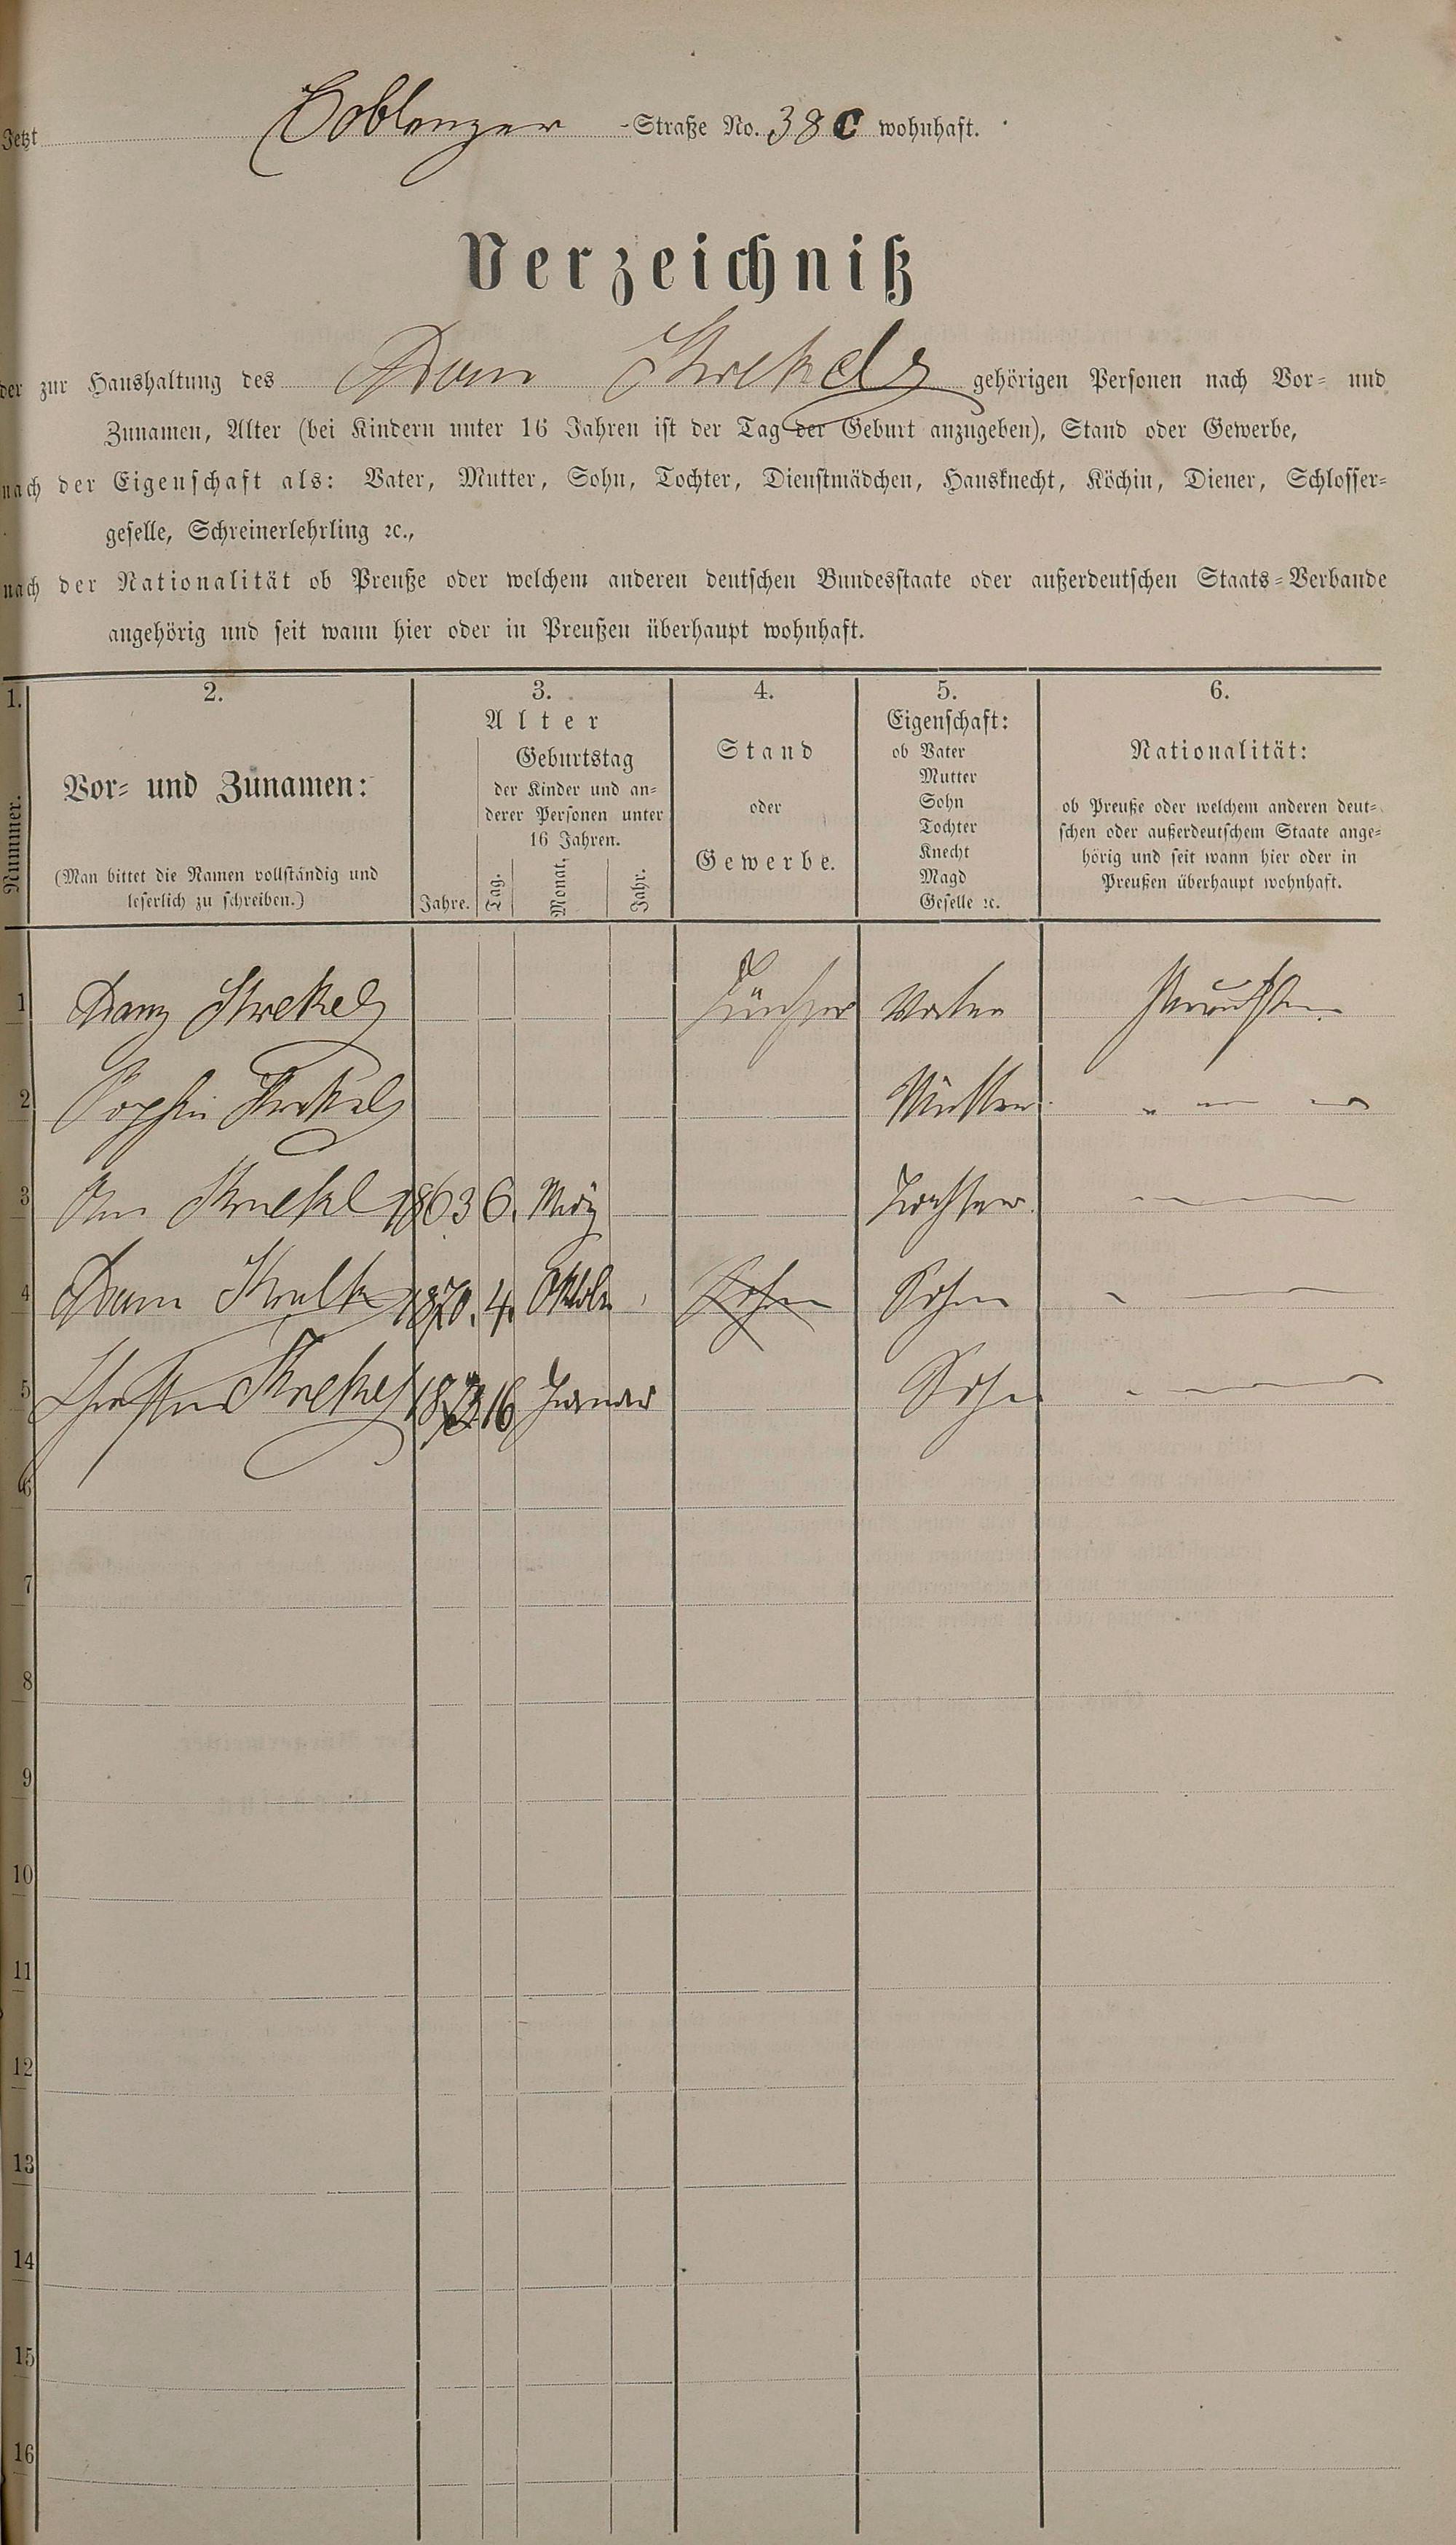 Jetzt Coblenzer -Straße No. 38 C wohnhaft.
Verzeichniß
der zur Haushaltung des gehörigen Personen nach Vor- und
Zunamen, Alter (bei Kindern unter 16 Jahren ist der Tag der Geburt anzugeben), Stand oder Gewerbe,
nach der Eigenschaft als: Vater, Mutter, Sohn, Tochter, Dienstmädchen, Hausknecht, Köchin, Diener, Schlosser-
geselle, Schreinerlehrling ꝛc.,
nach der Nationalität ob Preuße oder welchem anderen deutschen Bundesstaate oder außerdeutschen Staats-Verbande
angehörig und seit wann hier oder in Preußen überhaupt wohnhaft.
1. 2. 3. 4. 5. 6.
Nummer.
Vor- und Zunamen:
(Man bittet die Namen vollständig und
leserlich zu schreiben.)
Alter
Jahre.
Geburtstag
der Kinder und an-
derer Personen unter
16 Jahren.
Tag. Monat. Jahr.
Stand
oder
Gewerbe.
Eigenschaft:
ob Vater
Mutter
Sohn
Tochter
Knecht
Magd
Geselle ꝛc.
Nationalität:
ob Preuße oder welchem anderen deut-
schen oder außerdeutschem Staate ange-
hörig und seit wann hier oder in
Preußen überhaupt wohnhaft.
1 Vater
2 Mutter
3 1863 6. Tochter
4 1870. 4. Oktober Sohn Sohn
5 16 Januar Sohn
6
7
8
9
10
11
12
13
14
15
16